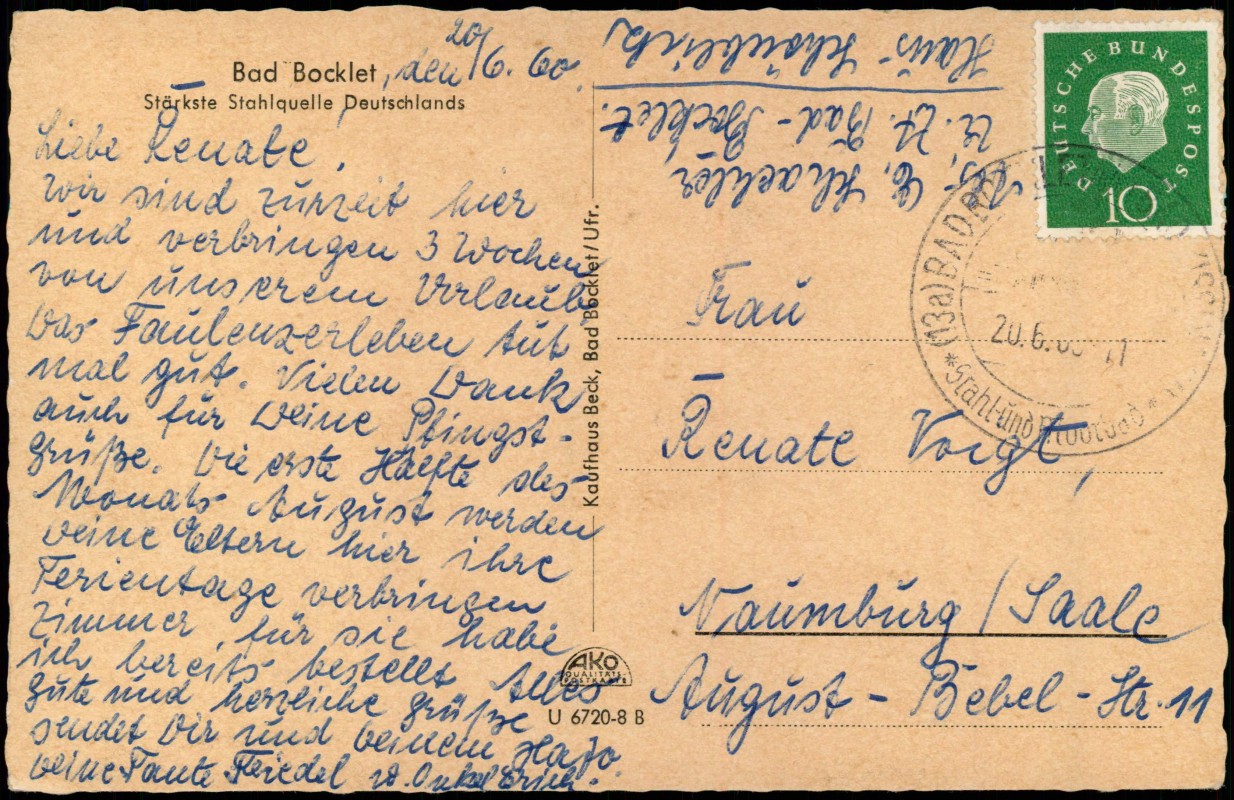 Bad Bocklet, den 20/6. 60.
Stärkste Stahlquelle Deutschlands
Liebe Renate,
Wir sind zurzeit hier
und verbringen 3 Wochen
von unserem Urlaub.
Das Faulenzerleben tut
mal gut. Vielen Dank
auch für Deine Pfingst-
grüße. Die erste Hälfte des
Monats August werden
Deine Eltern hier ihre
Ferientage verbringen
Zimmer für sie habe
ich bereits bestellt Alles
gute und herzliche Grüße
sendet Dir und Deinem Hajo
Deine Tante Friedel u. Onkel Erich.
Kaufhaus Beck, Bad Bocklet/Ufr.
AKO
QUALITÄTS-
POSTKARTE
U 6720-8 B
Abs. E. Schachler
z. Zt. Bad-Bocklet.
Haus
DEUTSCHE BUNDESPOST
10
(13a) BAD
20.6.60
* Stahl-und Moorbad *
Frau
Renate Voigt,
Naumburg/Saale
August-Bebel-Str. 11